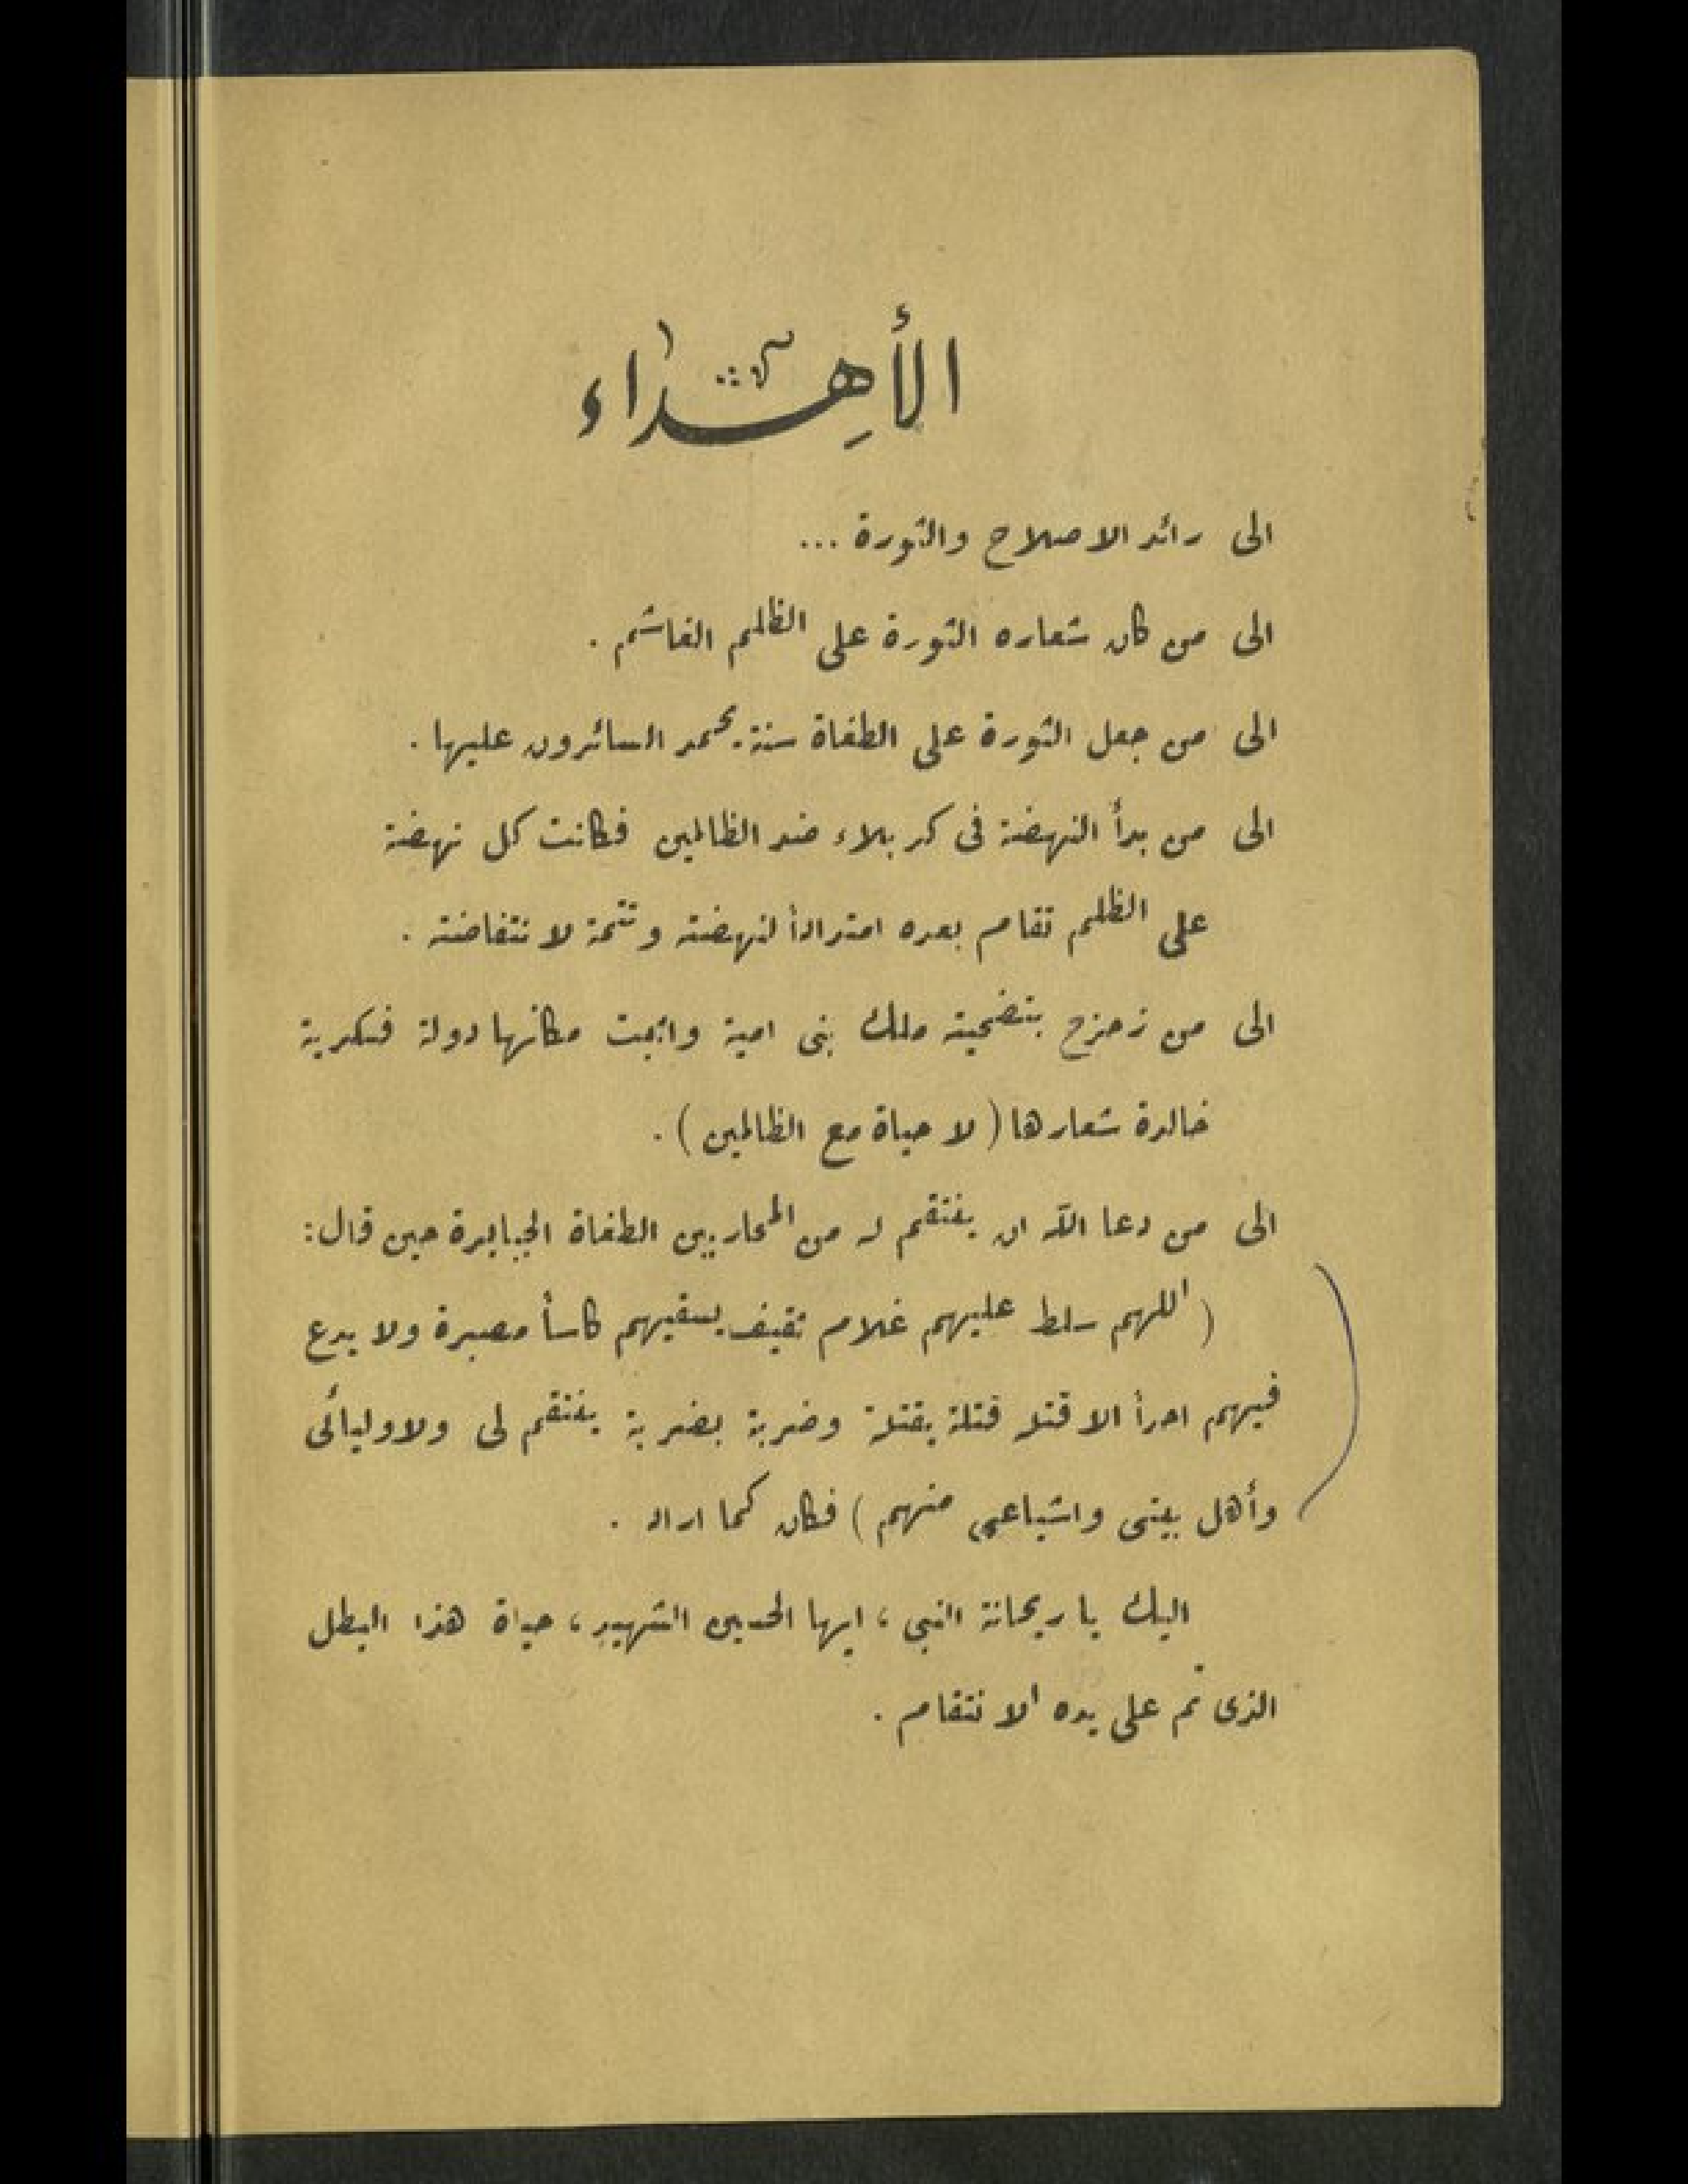 الأهداء
الى رائد الاصلاح والثورة ...
الى من كان شعاره الثورة على الظلم الغاشم .
الى من جعل الثورة على الطغاة سنة يحمد السائرون عليها .
الى من بدأ النهضة فى كربلاء ضد الظالمين فكانت كل نهضة
على الظلم تقام بعده امتداداً لنهضته وتتمة لانتفاضته .
الى من زحزح بتضحيته ملك بنى امية واثبت مكانها دولة فكرية
خالدة شعارها ( لا حياة مع الظالمين ) .
الى من دعا الله ان ينتقم له من المحاربين الطغاة الجبابرة حين قال :
( اللهم سلط عليهم غلام ثقيف يسقيهم كاسأ مصبرة ولا يدع
فيهم احدأ الا قتله قتلة بقتلة وضربة بضربة ينتقم لى ولاوليائى
وأهل بيتى واشياعى منهم ) فكان كما اراد .
اليك يا ريحانة النبي ، ايها الحسين الشهيد ، حياة هذا البطل
الذى تم على يده الانتقام .